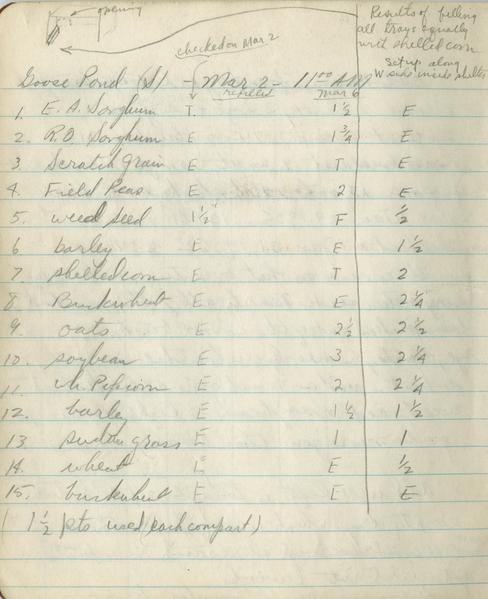 opening
Results of filling
all trays equally
with shelled corn
Setup along
W side inside shelter
checked on Mar. 2
Goose Pond (S) - Mar 2 - 11:00 AM
refilled Mar 6
1. E. A. Sorghum T. 1 1/2 E
2. R.O. Sorghum E 1 3/4 E
3. Scratch Grain E T E
4. Field Peas E 2 E
5. weed seed 1 1/2" F 1/2
6 barley E E 1 1/2
7. shelled corn E T 2
8 Buckwheat E E 2 1/4
9. oats E 2 1/2 2 1/2
10. soybean E 3 2 1/4
11. Popcorn E 2 2 1/4
12. barley E 1 1/2 1 1/2
13 sudan grass E 1 1
14. wheat E 1/2
15. buckwheat E E E
( 1 1/2 pts used (each compart)